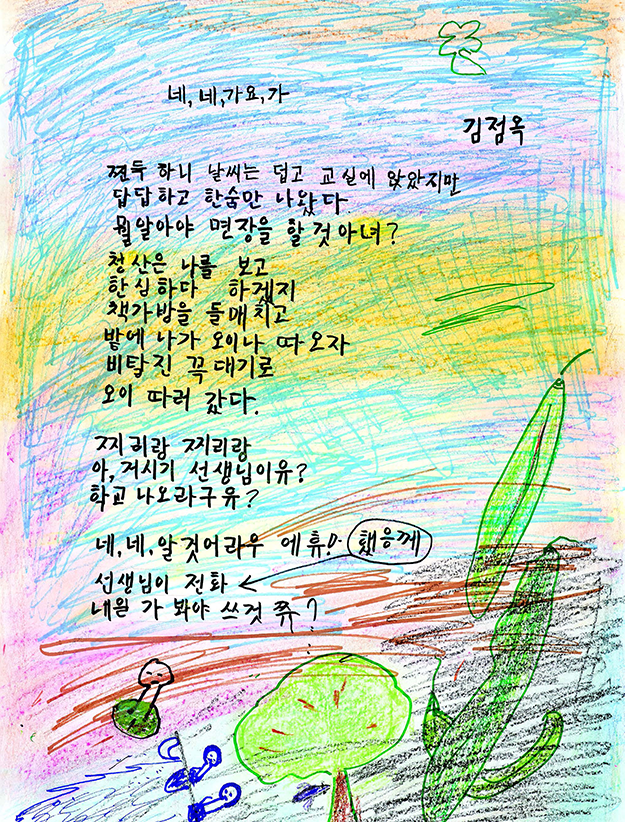 네, 네, 가요, 가
김점옥
쩐득 하니 날씨는 덥고 교실에 앉았지만
답답하고 한숨만 나왔다
뭘알아야 면장을 할것아녀?
청산은 나를 보고
한심하다 하겠지
책가방을 들매치고
밭에 나가 오이나 따 오자
비탈진 꼭대기로
오이 따러 갔다.
찌리랑 찌리랑
아, 거시기 선생님이유?
학교 나오라구유?
네, 네, 알것어라우 에휴!·· 했응께
선생님이 전화 ←
내원 가 봐야 쓰것 쮸?